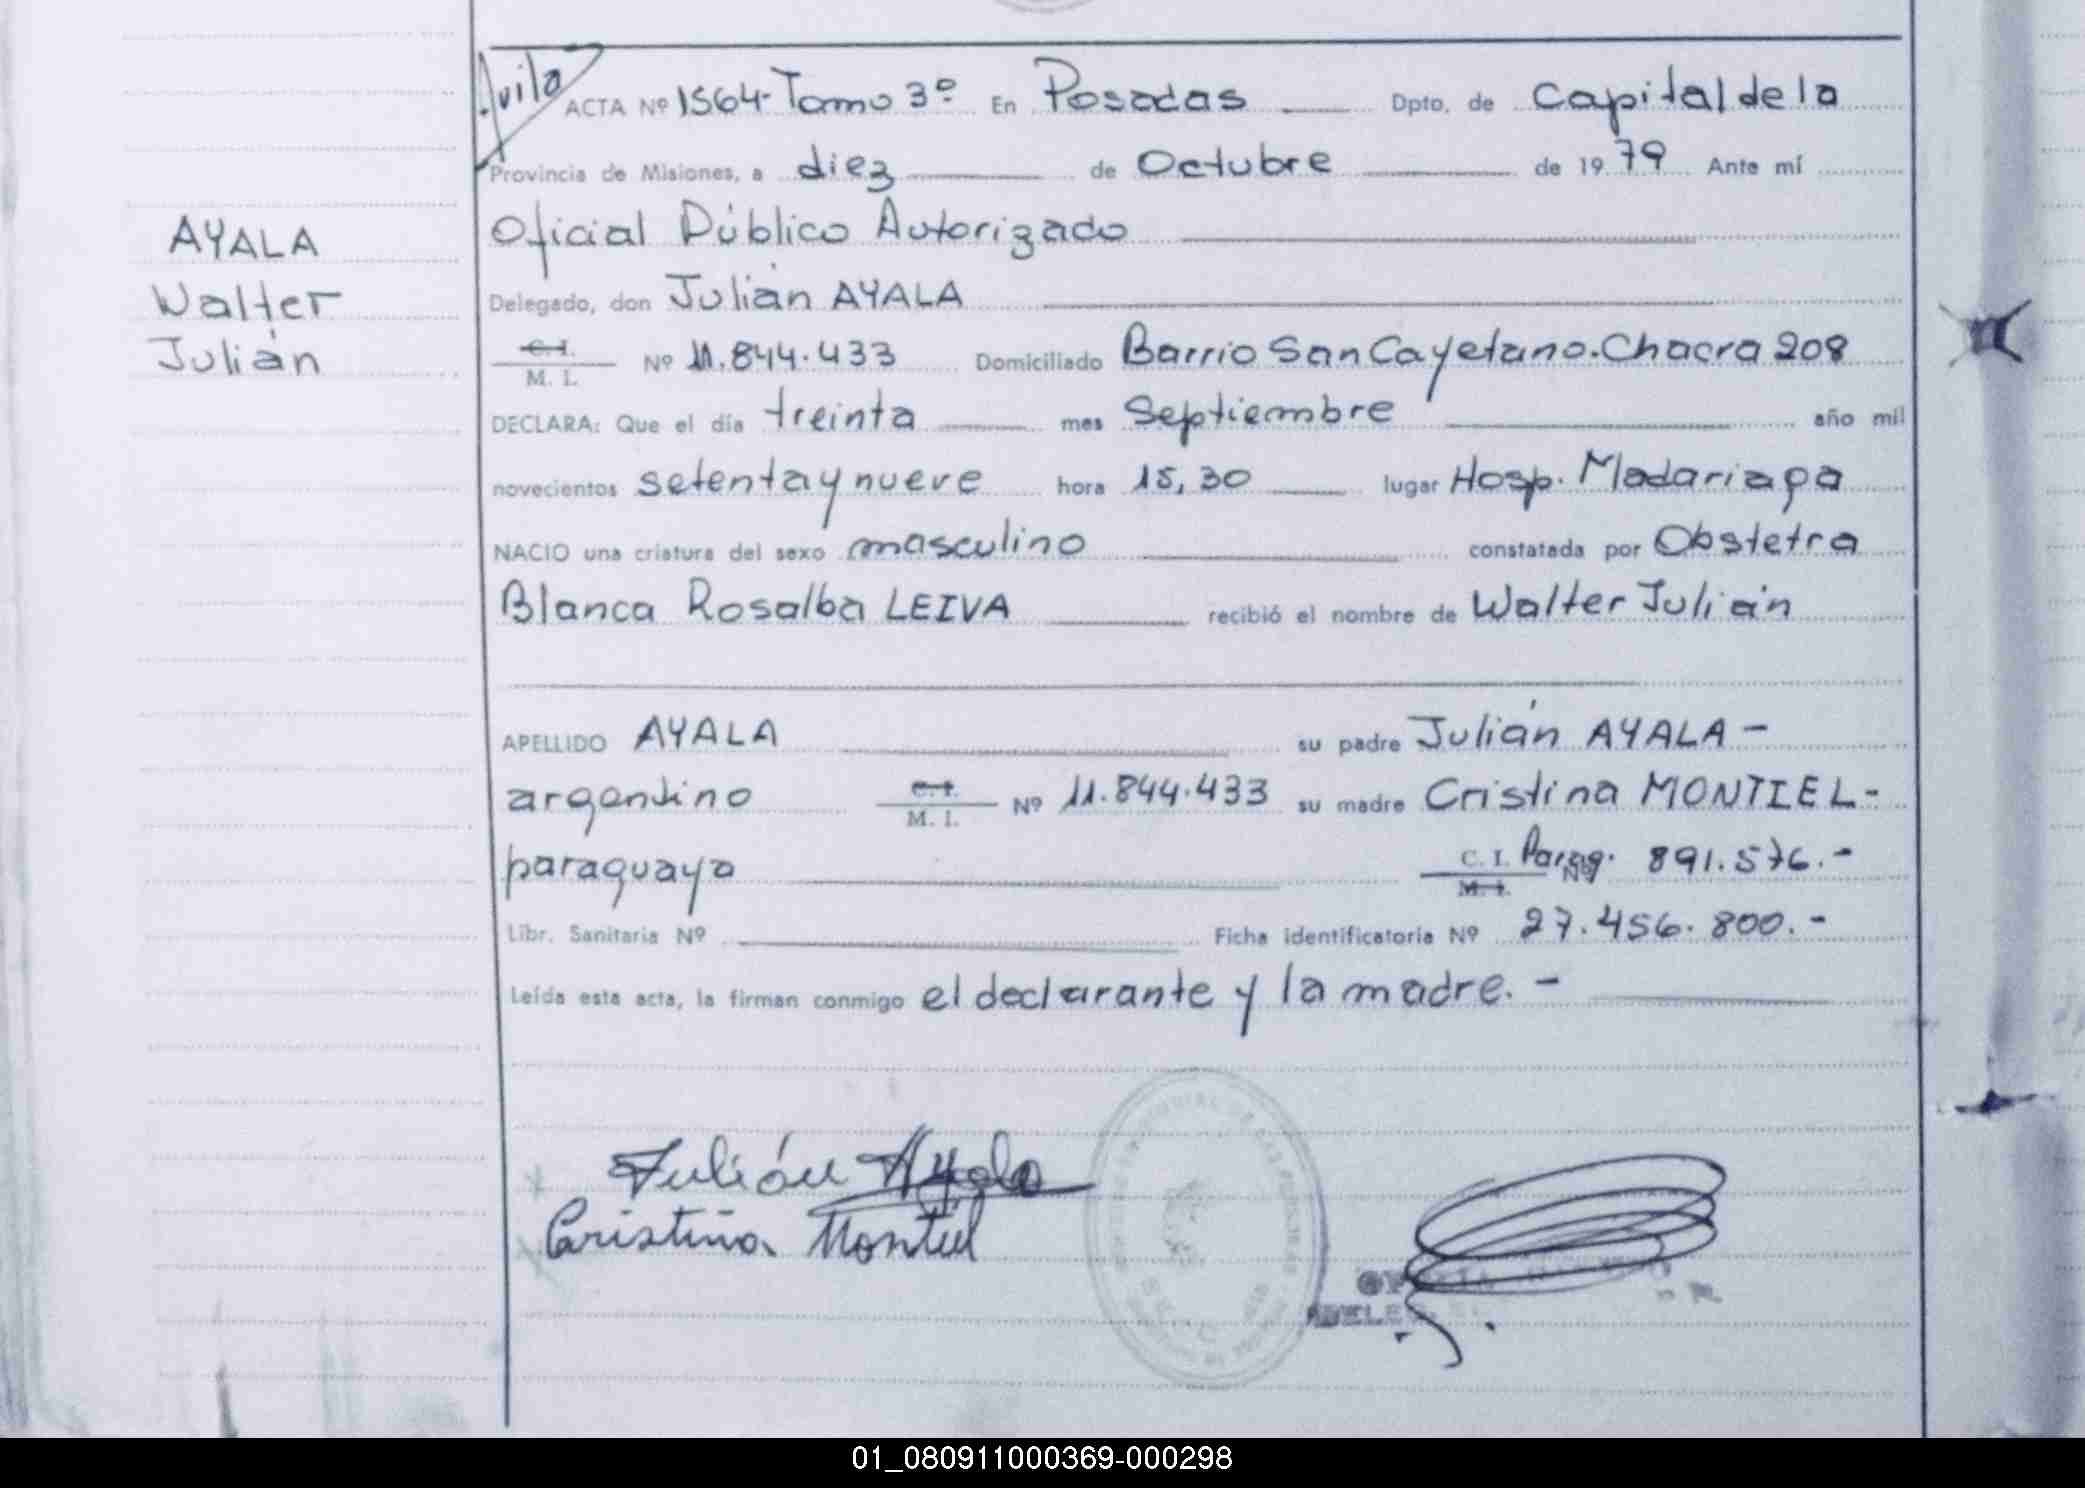 Avila
ACTA Nº 1564-Tomo 3º En Posadas Dpto. de Capital de la
Provincia de Misiones, a diez de Octubre de 1979 Ante mí
Oficial Público Autorizado
AYALA
Walter
Julián
Delegado, don Julián AYALA
C. I. M. I. Nº 11.844.433 Domiciliado Barrio San Cayetano. Chacra 208
DECLARA: Que el día treinta mes Septiembre año mil
novecientos setenta y nueve hora 15,30 lugar Hosp. Madariaga
NACIO una criatura del sexo masculino constatada por Obstetra
Blanca Rosalba LEIVA recibió el nombre de Walter Julián
APELLIDO AYALA su padre Julián AYALA -
argentino C. I. M. I. Nº 11.844.433 su madre Cristina MONTIEL -
paraguaya C. I. M. I. Parag. Nº 891.576.-
Libr. Sanitaria Nº Ficha identificatoria Nº 27.456.800.-
Leída esta acta, la firman conmigo el declarante y la madre. -
Julián Ayala
Cristina Montiel
01_080911000369-000298